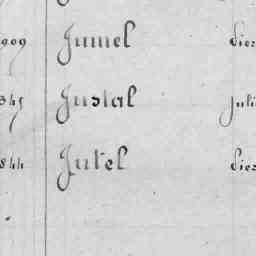 909 Jumel Pier
345 Justal Juli
844 Jutel Pier